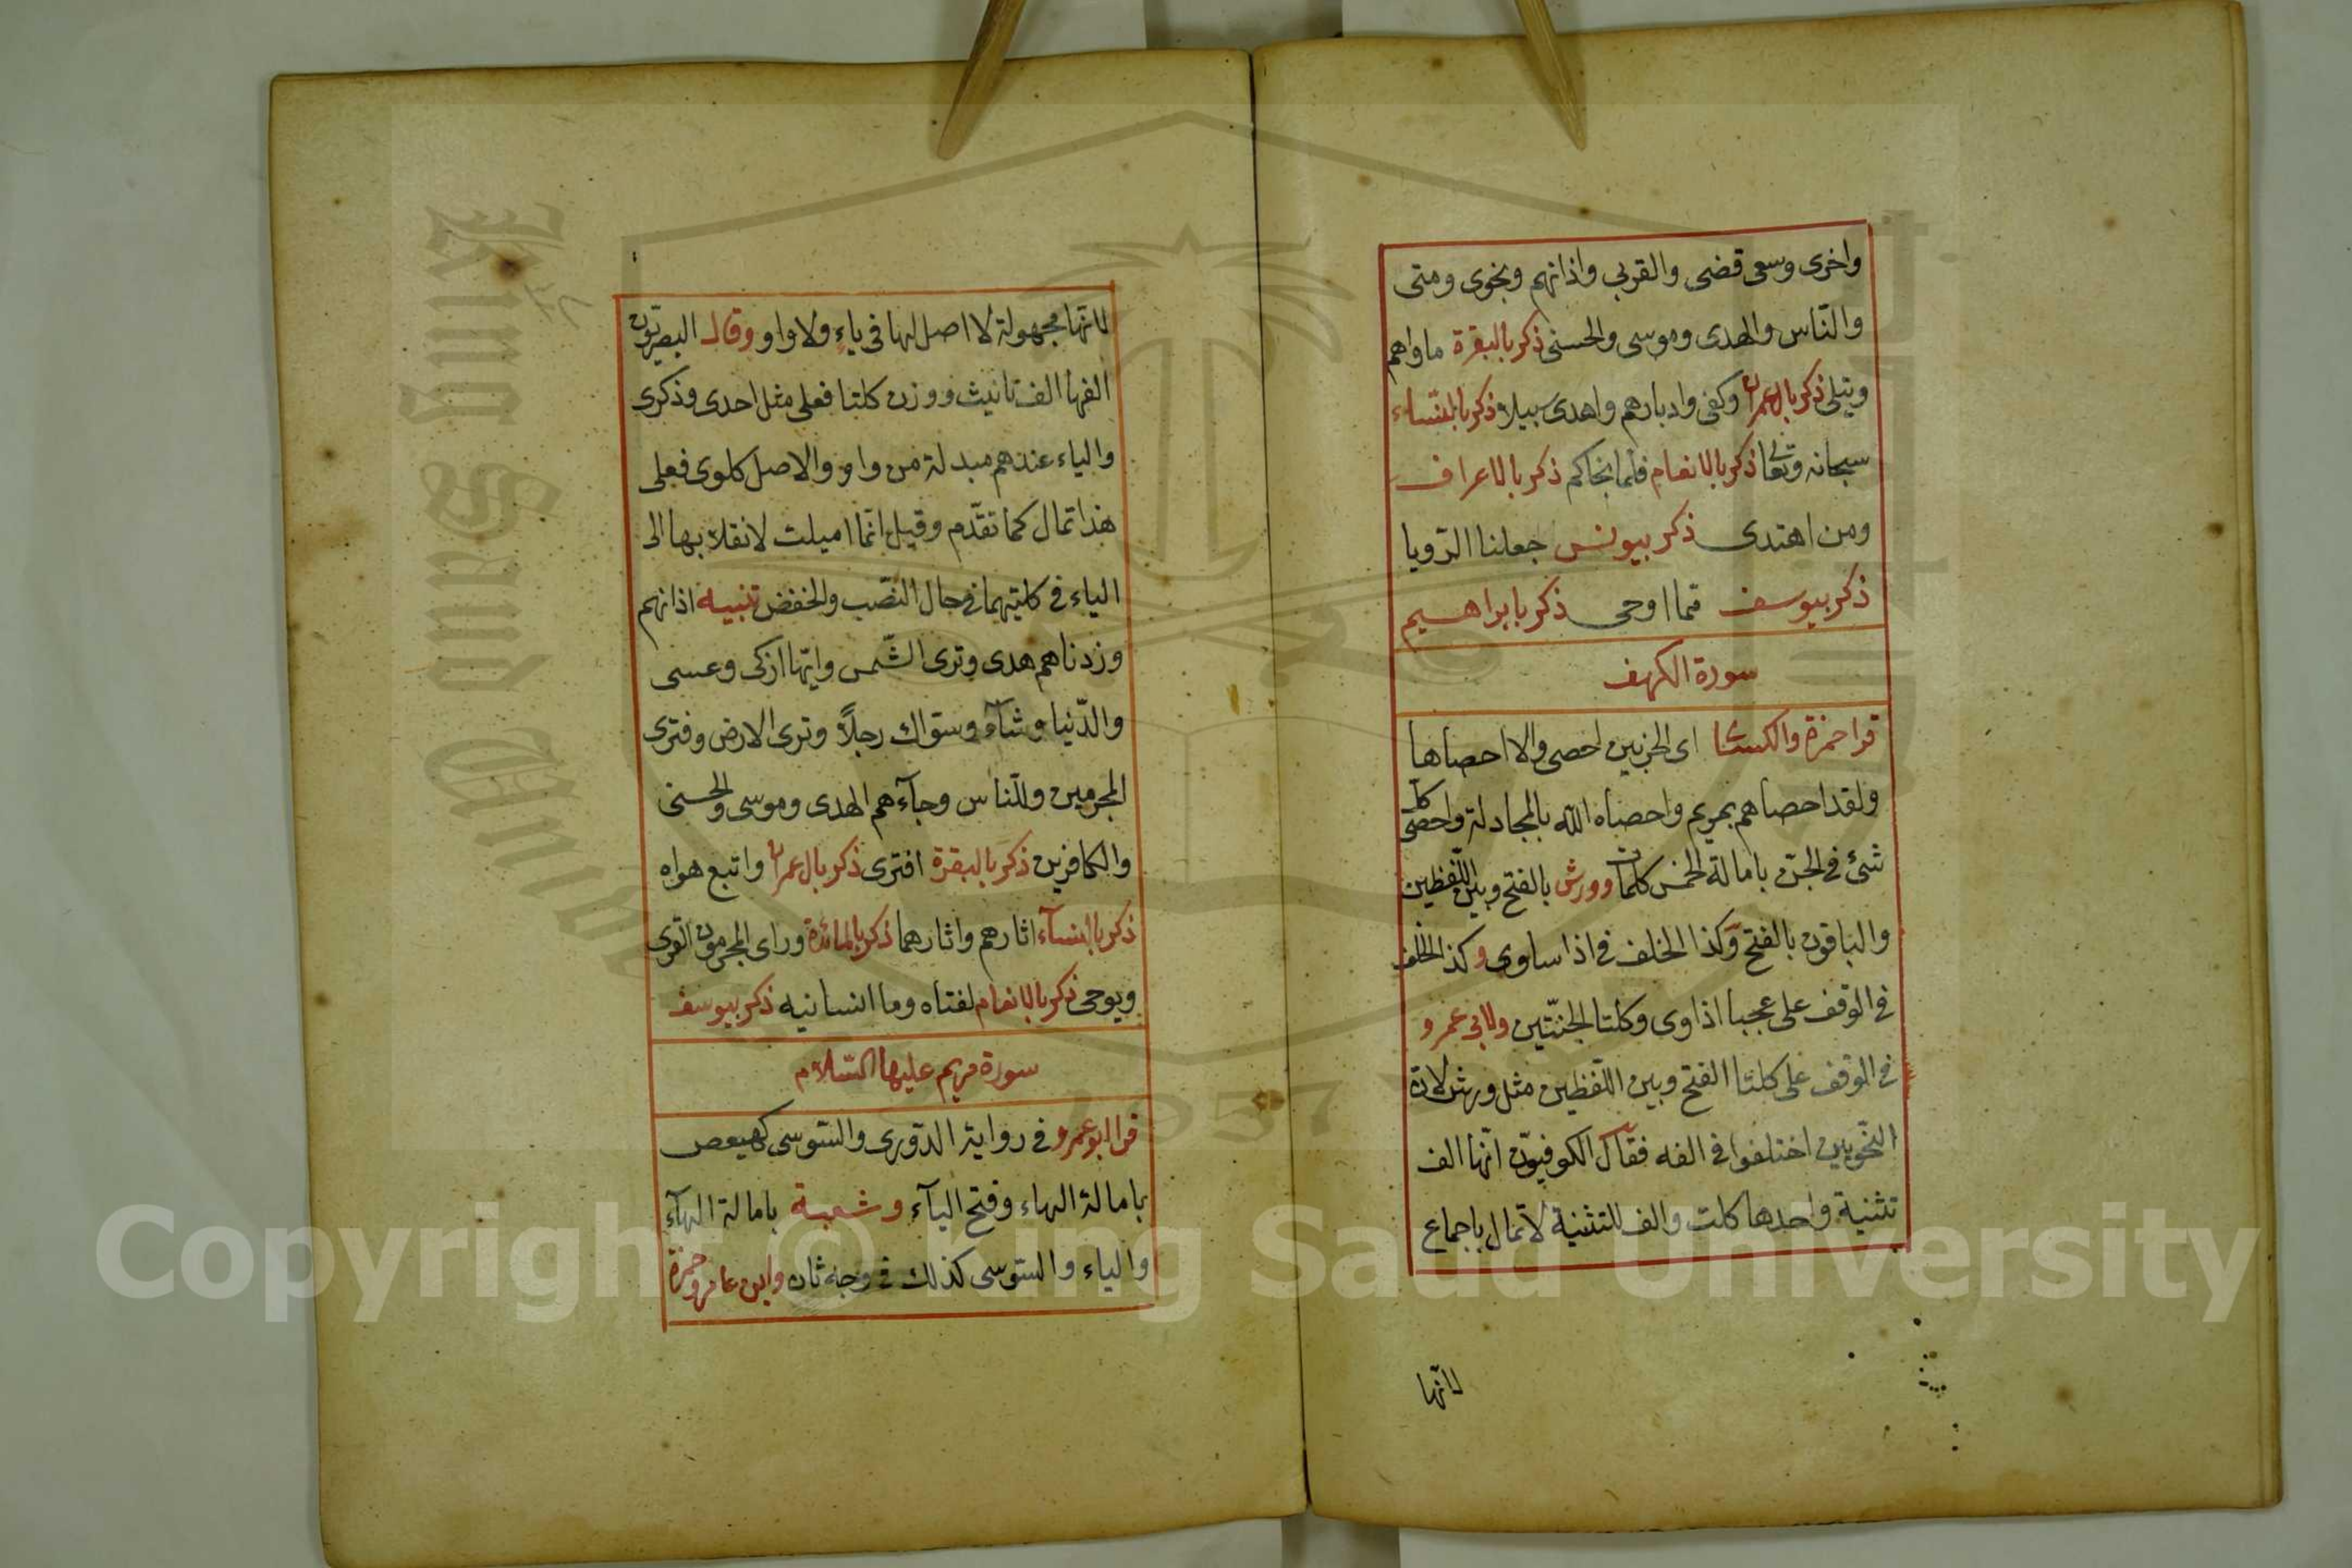 واخرى وسعى قضى والقربى واذانهم ونجوى ومتى
والنّاس والهدى وموسى والحسنى ذكر بالبقرة ماواهم
ويتلى ذكر بال عمران وكفى وادبارهم واهدى سبيلا ذكر بالنّساء
سبحانه وتعالى ذكر بالانعام فلما نجاكم ذكر بالاعراف
ومن اهتدى ذكر بيونس جعلنا الرّويا
ذكر بيوسف ممّا اوحى ذكر بابراهيم
سورة الكهف
قرا حمزة والكسائى اى الحزبين احصى والا احصاها
ولقد احصاهم بمريم واحصاه الله بالمجادلة واحصى كل
شئ فى الجنّ بامالة الخمس كلمات وورش بالفتح وبين اللّفظين
والباقون بالفتح وكذا الخلف فى اذا ساوى وكذا الخلف
فى الوقف على عجبا اذ اوى وكلتا الجنّتين ولابى عمرو
فى الوقف على كلتا الفتح وبين اللّفظين مثل ورش لان
النّحويين اختلفوا فى الفه فقال الكوفيّون انّها الف
تثنية واحدها كلت والف للتثنية لا تمال باجماع
لانّها
لانّها مجهولة لا اصل لها فى ياءٍ ولا واو وقال البصريّون
الفها الف تانيث ووزن كلتا فعلى مثل احدى وذكرى
والياء عندهم مبدلة من واو والاصل كلوى فعلى
هذا تمال كما تقدّم وقيل انّما اميلت لانقلابها الى
الياء فى كلتيهما فى حال النّصب والخفض تنبيه اذانهم
وزدناهم هدى وترى الشّمس وايّها ازكى وعسى
والدّنيا وشآء وسوّاك رجلاً وترى الارض وفترى
المجرمين وللنّاس وجآءهم الهدى وموسى والحسنى
والكافرين ذكر بالبقرة افترى ذكر بال عمران واتبع هواه
ذكر بالنسآء اثارهم واثارهما ذكر بالمائدة وراى المجرمون القرى
ويوحى ذكر بالانعام لفتاه وما انسانيه ذكر بيوسف
سورة مريم عليها السّلام
قرا ابو عمرو فى رواية الدّورى والسّوسى كهيعص
بامالة الهاء وفتح اليآء وشعبة بامالة الهآء
والياء والسّوسى كذلك فى وجه ثان وابن عامر وحمزة
Copyright © King Saud University
1957